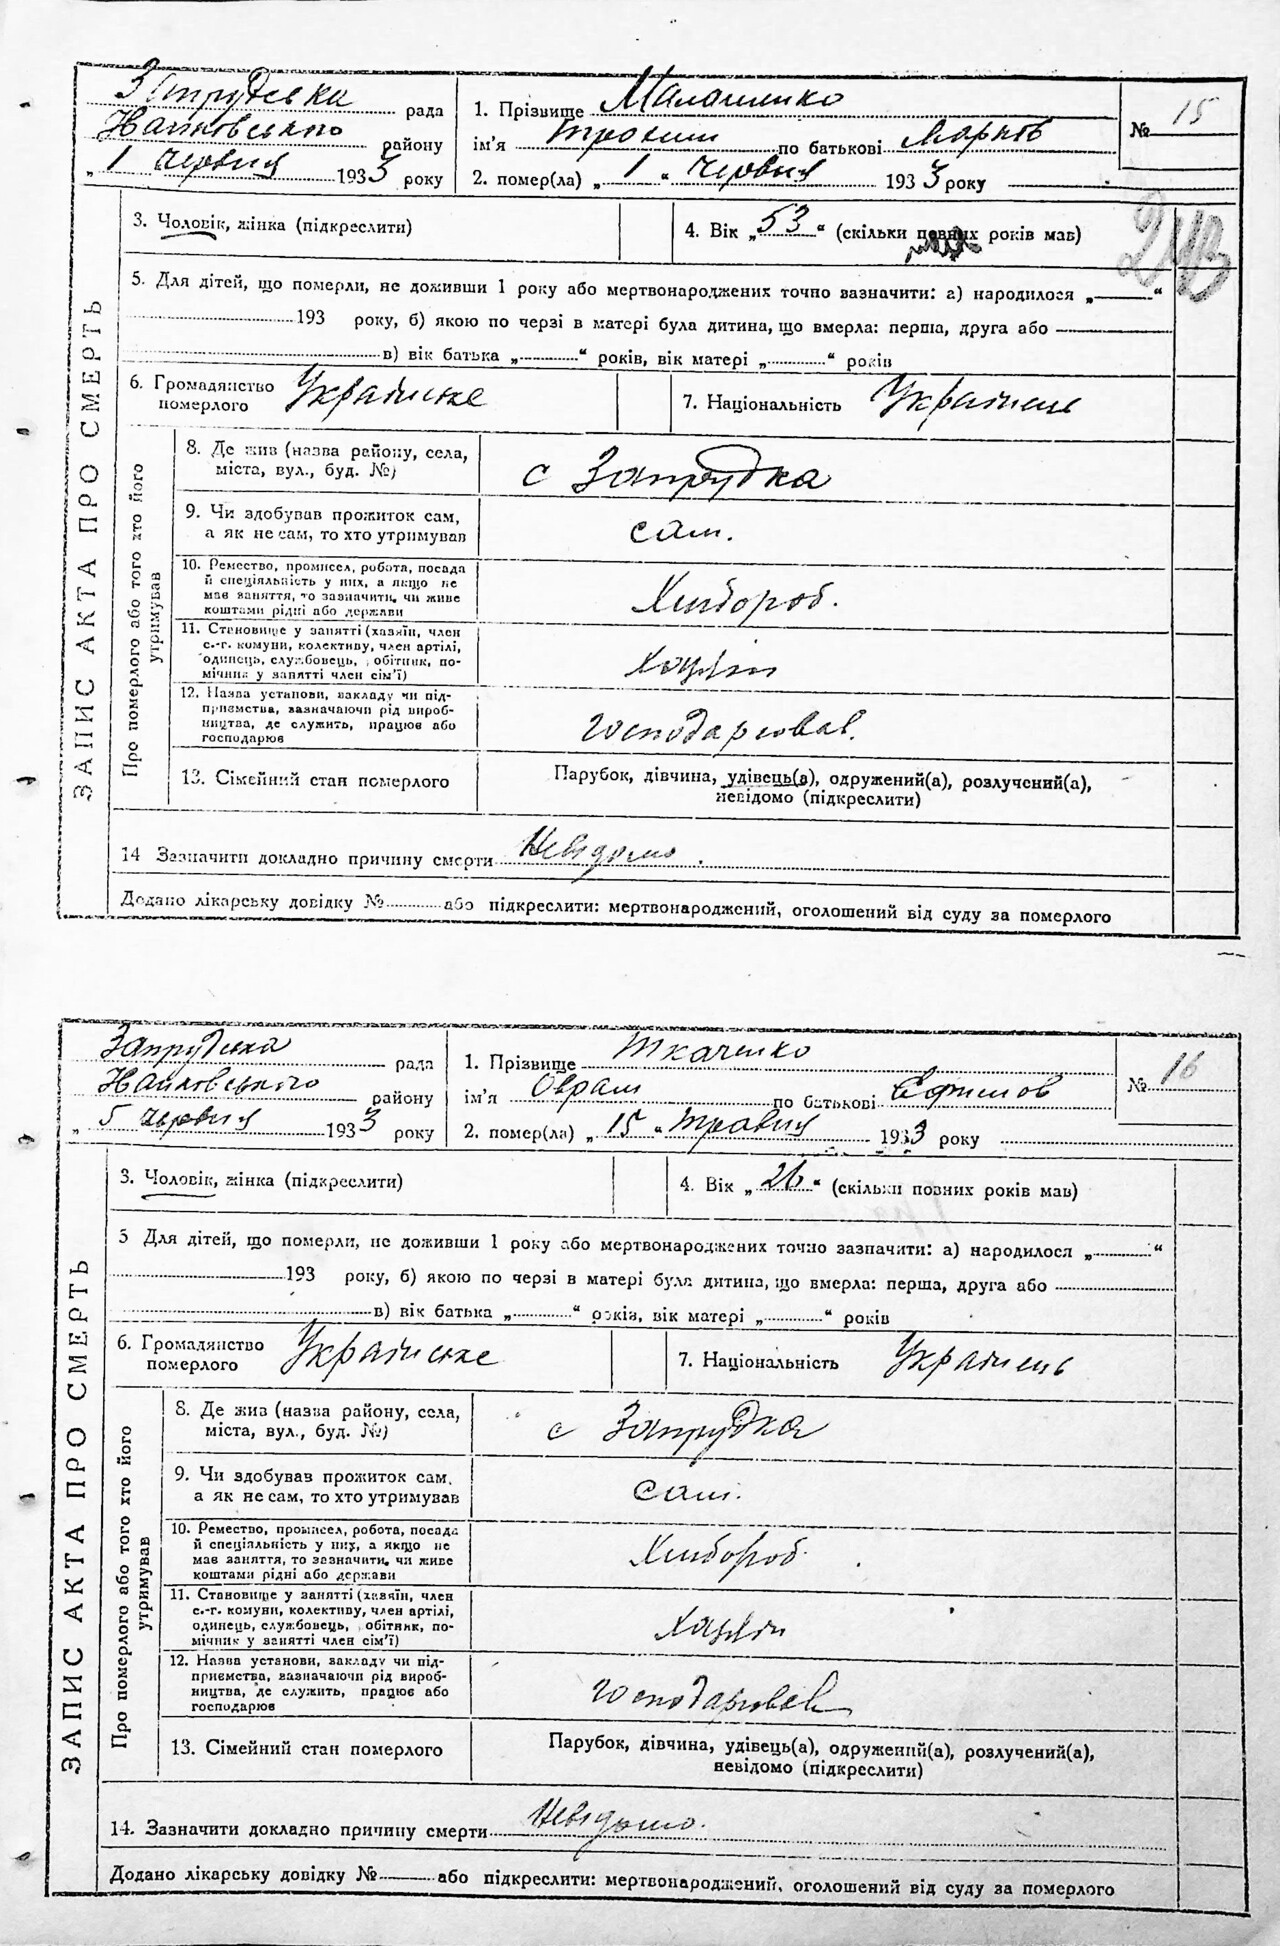 ЗАПИС АКТА ПРО СМЕРТЬ
Запрудська рада
району
„1 червня 1933 року
1. Прізвище Малашенко
ім'я Трохим по батькові Марков
2. помер(ла) „1“ червня 1933 року
№ 15
243
3. Чоловік, жінка (підкреслити)
4. Вік „53“ (скільки повних років мав)
5. Для дітей, що померли, не доживши 1 року або мертвонароджених точно зазначити: а) народилося „ “
193 року, б) якою по черзі в матері була дитина, що вмерла: перша, друга або
в) вік батька „ “ років, вік матері „ “ років
6. Громадянство померлого Українське
7. Національність Українець
Про померлого або того хто його утримував
8. Де жив (назва району, села,
міста, вул., буд. №) с Запрудка
9. Чи здобував прожиток сам,
а як не сам, то хто утримував сам.
10. Ремество, промисел, робота, посада
й спеціяльність у них, а якщо не
мав заняття, то зазначити, чи живе
коштами рідні або держави Хлібороб.
11. Становище у занятті (хазяїн, член
с.-г. комуни, колективу, член артілі,
одинець, службовець, обітник, по-
мічник у занятті член сім'ї) Хазяїн
12. Назва установи, закладу чи під-
приємства, зазначаючи рід вироб-
ництва, де служить, працює або
господарює господарював.
13. Сімейний стан померлого
Парубок, дівчина, удівець(а), одружений(а), розлучений(а),
невідомо (підкреслити)
14 Зазначити докладно причину смерти Невідомо.
Додано лікарську довідку № або підкреслити: мертвонароджений, оголошений від суду за померлого
ЗАПИС АКТА ПРО СМЕРТЬ
Запрудська рада
району
„5 червня 1933 року
1. Прізвище Ткаченко
ім'я Оврам по батькові Ефимов
2. помер(ла) „15“ травня 1933 року
№ 16
3. Чоловік, жінка (підкреслити)
4. Вік „26“ (скільки повних років мав)
5 Для дітей, що померли, не доживши 1 року або мертвонароджених точно зазначити: а) народилося „ “
193 року, б) якою по черзі в матері була дитина, що вмерла: перша, друга або
в) вік батька „ “ років, вік матері „ “ років
6. Громадянство померлого Українське
7. Національність Українець
Про померлого або того хто його утримував
8. Де жив (назва району, села,
міста, вул., буд. №) с Запрудка
9. Чи здобував прожиток сам,
а як не сам, то хто утримував сам.
10. Ремество, промисел, робота, посада
й спеціяльність у них, а якщо не
мав заняття, то зазначити, чи живе
коштами рідні або держави Хлібороб.
11. Становище у занятті (хазяїн, член
с.-г. комуни, колективу, член артілі,
одинець, службовець, обітник, по-
мічник у занятті член сім'ї) Хазяїн
12. Назва установи, закладу чи під-
приємства, зазначаючи рід вироб-
ництва, де служить, працює або
господарює господарював
13. Сімейний стан померлого
Парубок, дівчина, удівець(а), одружений(а), розлучений(а),
невідомо (підкреслити)
14. Зазначити докладно причину смерти Невідомо.
Додано лікарську довідку № або підкреслити: мертвонароджений, оголошений від суду за померлого